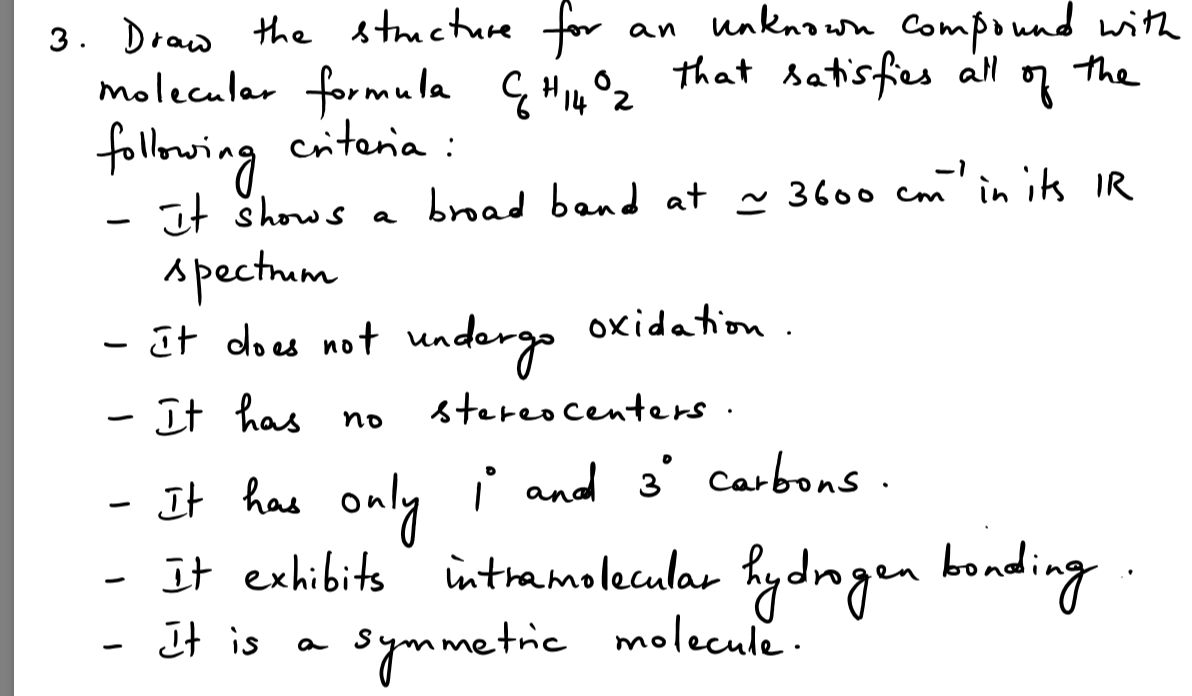 3. Draw the structure for an unknown compound with
molecular formula C₆H₁₄O₂ that satisfies all of the
following criteria :
- It shows a broad band at ≃ 3600 cm⁻¹ in its IR
spectrum
- It does not undergo oxidation.
- It has no stereocenters.
- It has only 1° and 3° carbons.
- It exhibits intramolecular hydrogen bonding.
- It is a symmetric molecule.